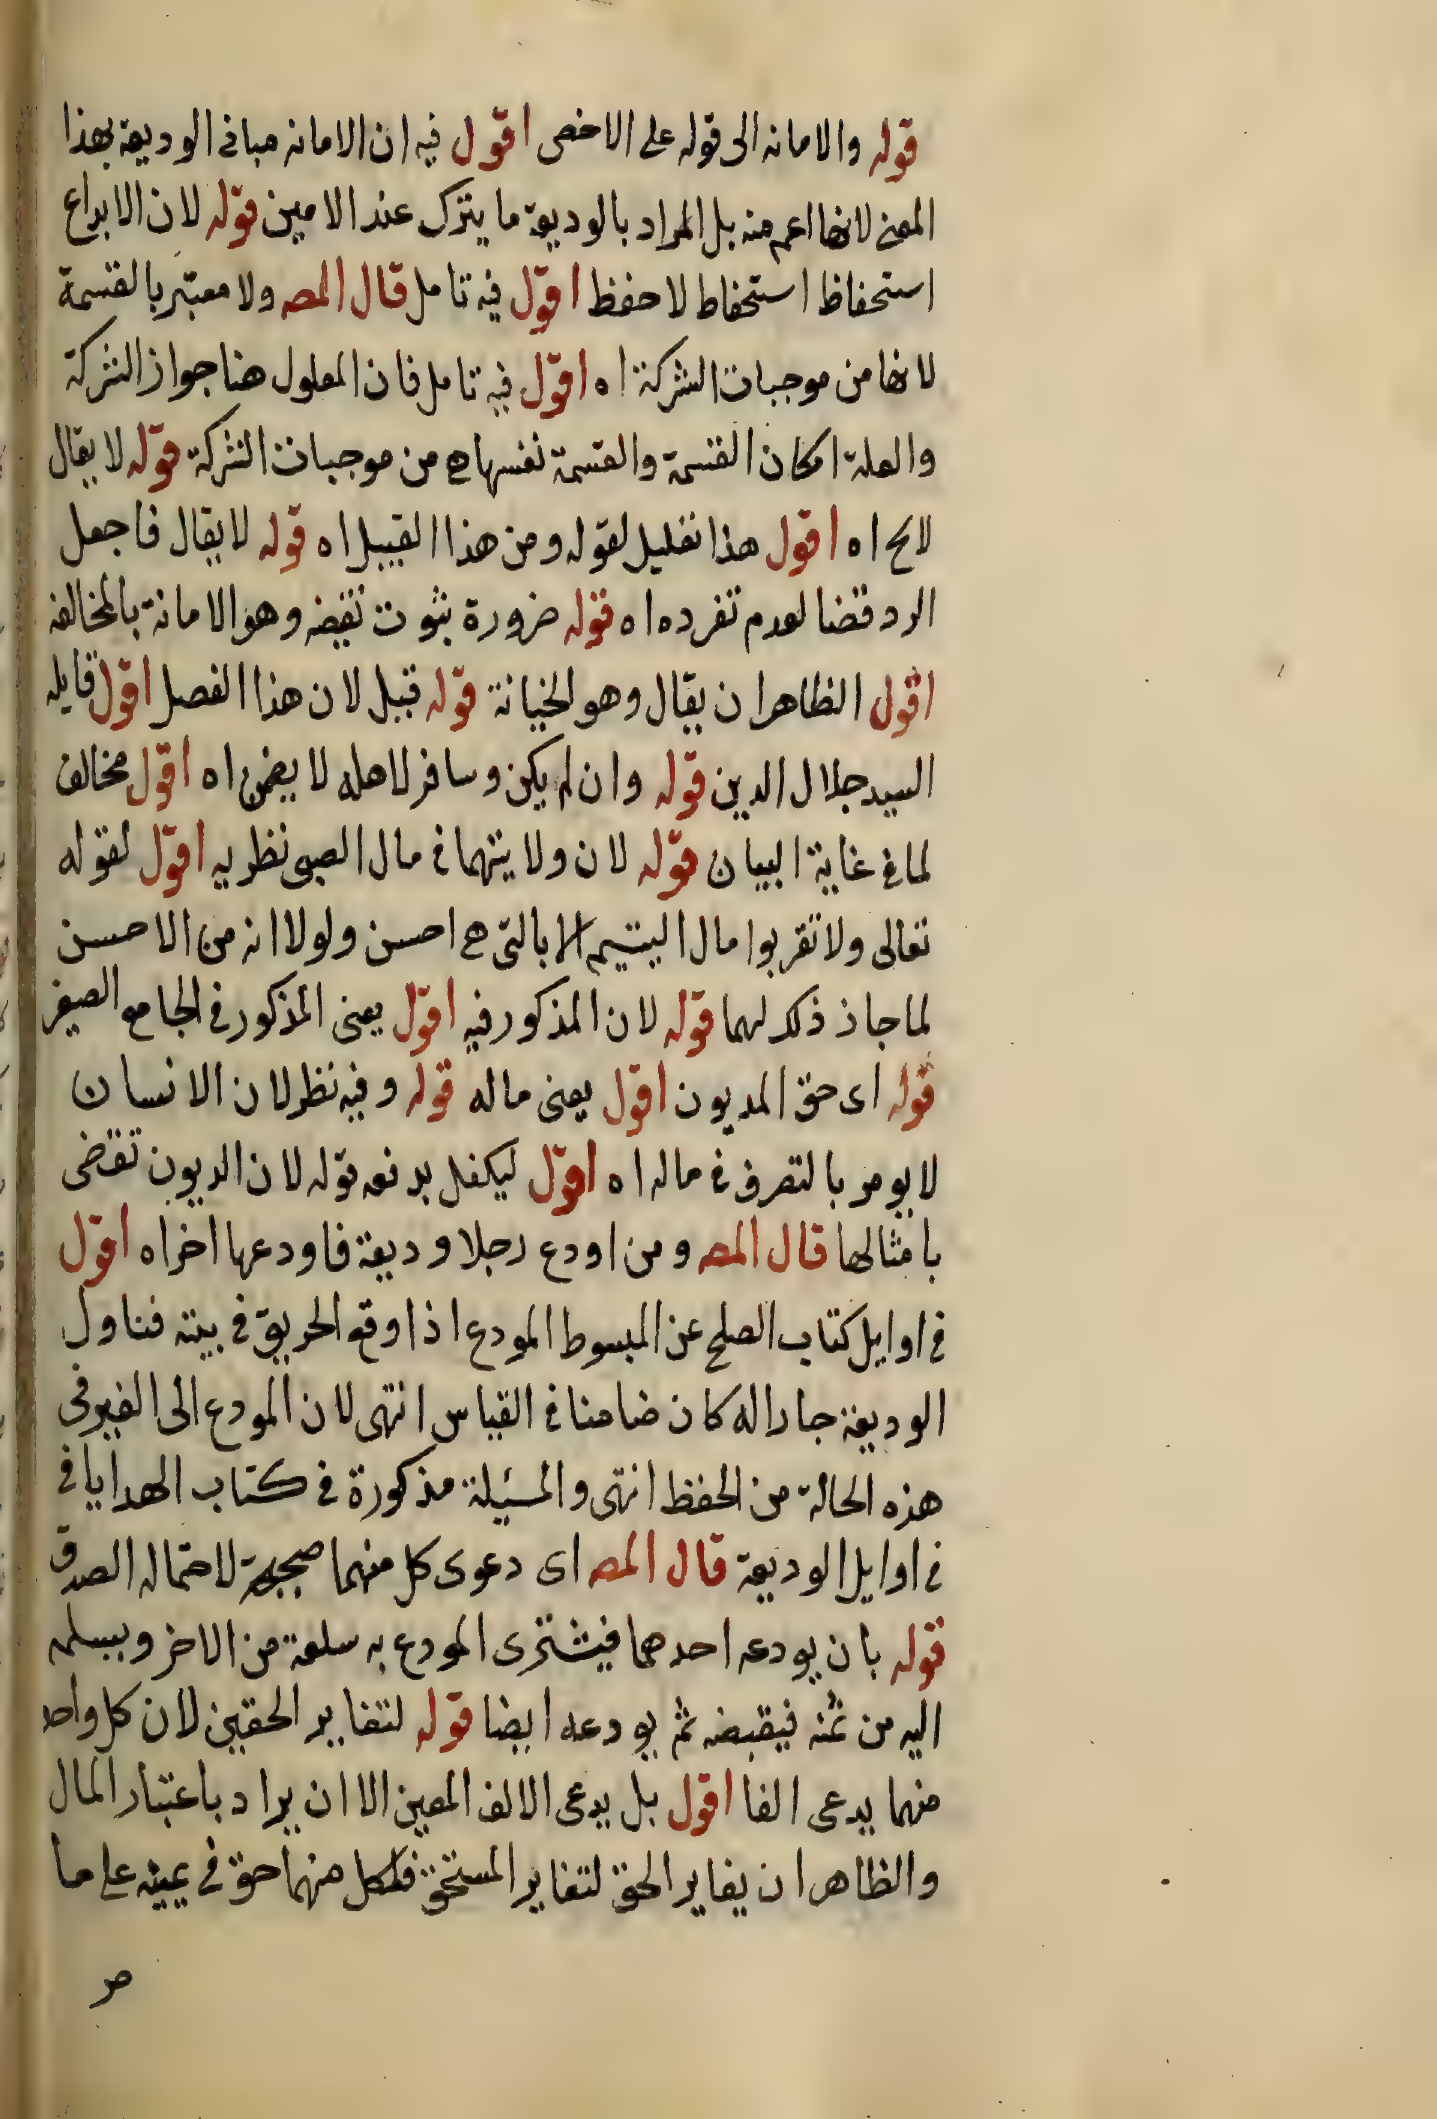 قوله والامانه الى قوله على الاخص اقول فيه ان الامانه مباين الوديعة بهذا
المعنى لانها اعم منه بل المراد بالوديعة ما يترك عند الامين قوله لان الايداع
استحفاظ استحفاظ لا حفظ اقول فيه تامل قال المص ولا معتبر بالقسمة
لانها من موجبات الشركة اه اقول فيه تامل فان المعلول هنا جواز الشركة
والعلة امكان القسمة والقسمة نفسها هي من موجبات الشركة قوله لا يقال
لا يح اه اقول هذا تعليل لقوله ومن هذا القبيل اه قوله لا يقال فاجعل
الرد قضا لعدم تفرده اه قوله ضرورة ثبوت نقيضه وهو الامانة بالمخالفه
اقول الظاهر ان يقال وهو الخيانة قوله قبيل لان هذا الفصل اقول قايله
السيد جلال الدين قوله وان لم يكن وسافر لاهله لا يضمن اه اقول مخالف
لما في غاية البيان قوله لان ولايتهما في مال الصبي نظريه اقول لقوله
تعالى ولا تقربوا مال اليتيم الا بالتي هي احسن ولولا انه من الاحسن
لما جاز ذلك لهما قوله لان المذكور فيه اقول يعنى المذكور في الجامع الصغير
قوله اى حق المديون اقول يعنى ماله قوله وفيه نظر لان الانسان
لا يومر بالتصرف في ماله اه اقول ليكفل بدفعه قوله لان الديون تقضى
بامثالها قال المص ومن اودع رجلا وديعة فاودعها اخر اه اقول
في اوايل كتاب الصلح عن المبسوط المودع اذا وقع الحريق في بيته فناول
الوديعة جارا له كان ضامنا في القياس انتهى لان المودع الى الغير في
هذه الحالة من الحفظ انتهى والمسئلة مذكورة في كتاب الهدايا في
في اوايل الوديعة قال المص اى دعوى كل منهما صحيحة لاحتماله الصدق
قوله بان يودعه احدهما فيشترى المودع به سلعة من الاخر ويسلمه
اليه من ثمنه فيقبضه ثم يودعه ايضا قوله لتغاير الحقين لان كل واحد
منهما يدعى الفا اقول بل يدعى الالف المعين الا ان يراد باعتبار المال
والظاهر ان يغاير الحق لتغاير المستحق فلكل منهما حق في يمينه على ما